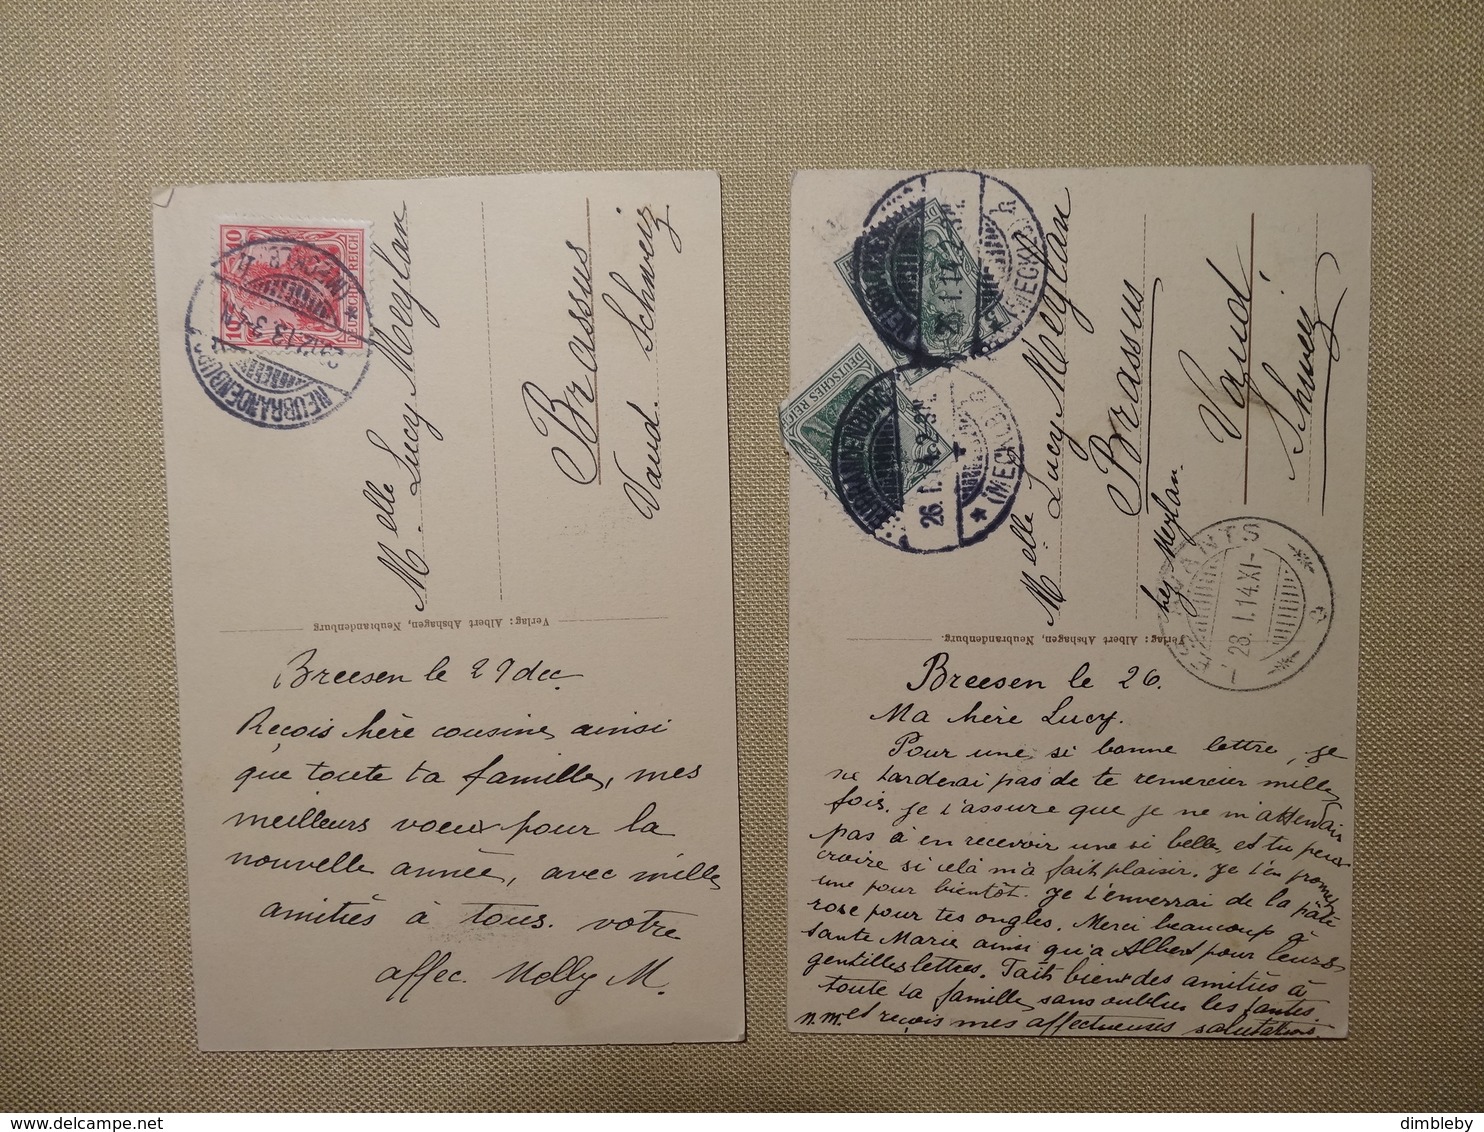 10
10
DEUTSCHES REICH
NEUBRANDENBURG
M elle Lucy Meylan
Brassus
Vaud. Schweiz
Verlag: Albert Abshagen, Neubrandenburg
Breesen le 29 dec.
Reçois chère cousine, ainsi
que toute ta famille, mes
meilleurs voeux pour la
nouvelle année, avec mille
amitiés à tous. votre
affec. Nelly M.
DEUTSCHES REICH
NEUBRANDENBURG
(MECKLB.)
26.1.14.2-3N.
M elle Lucy Meylan
Brassus
chez Meylan.
Vaud
Schweiz
28.1.14.XI-
Verlag: Albert Abshagen, Neubrandenburg.
Breesen le 26.
Ma chère Lucy.
Pour une si bonne lettre, je
ne tarderai pas de te remercier mille
fois. Je t'assure que je ne m'attendais
pas à en recevoir une si belle, et tu peux
croire si celà m'a fait plaisir. Je t'en promets
une pour bientôt. Je t'enverrai de la pâte
rose pour tes ongles. Merci beaucoup à
tante Marie ainsi qu'à Albert pour leurs
gentilles lettres. Fais bien des amitiés à
toute ta famille, sans oublier les tantes.
et reçois mes affectueuses salutations.
N.M.
delcampe.net
dimbleby